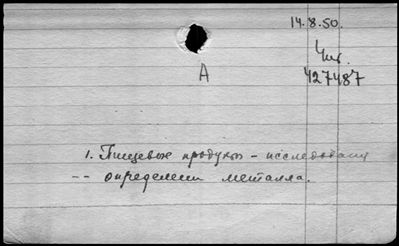 14.8.50.
Чит.
A
427487
1. Пищевые продукты - исследование
-- определение металла.